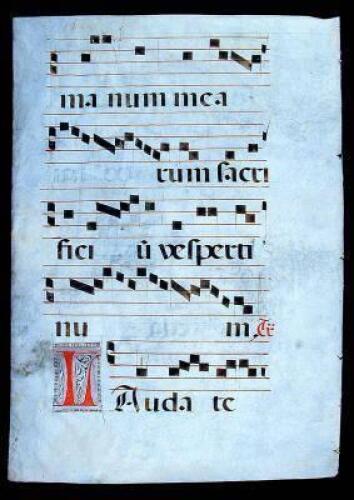 ma num mea
rum ſacri
fici ū veſperti
nu m.
LAuda te